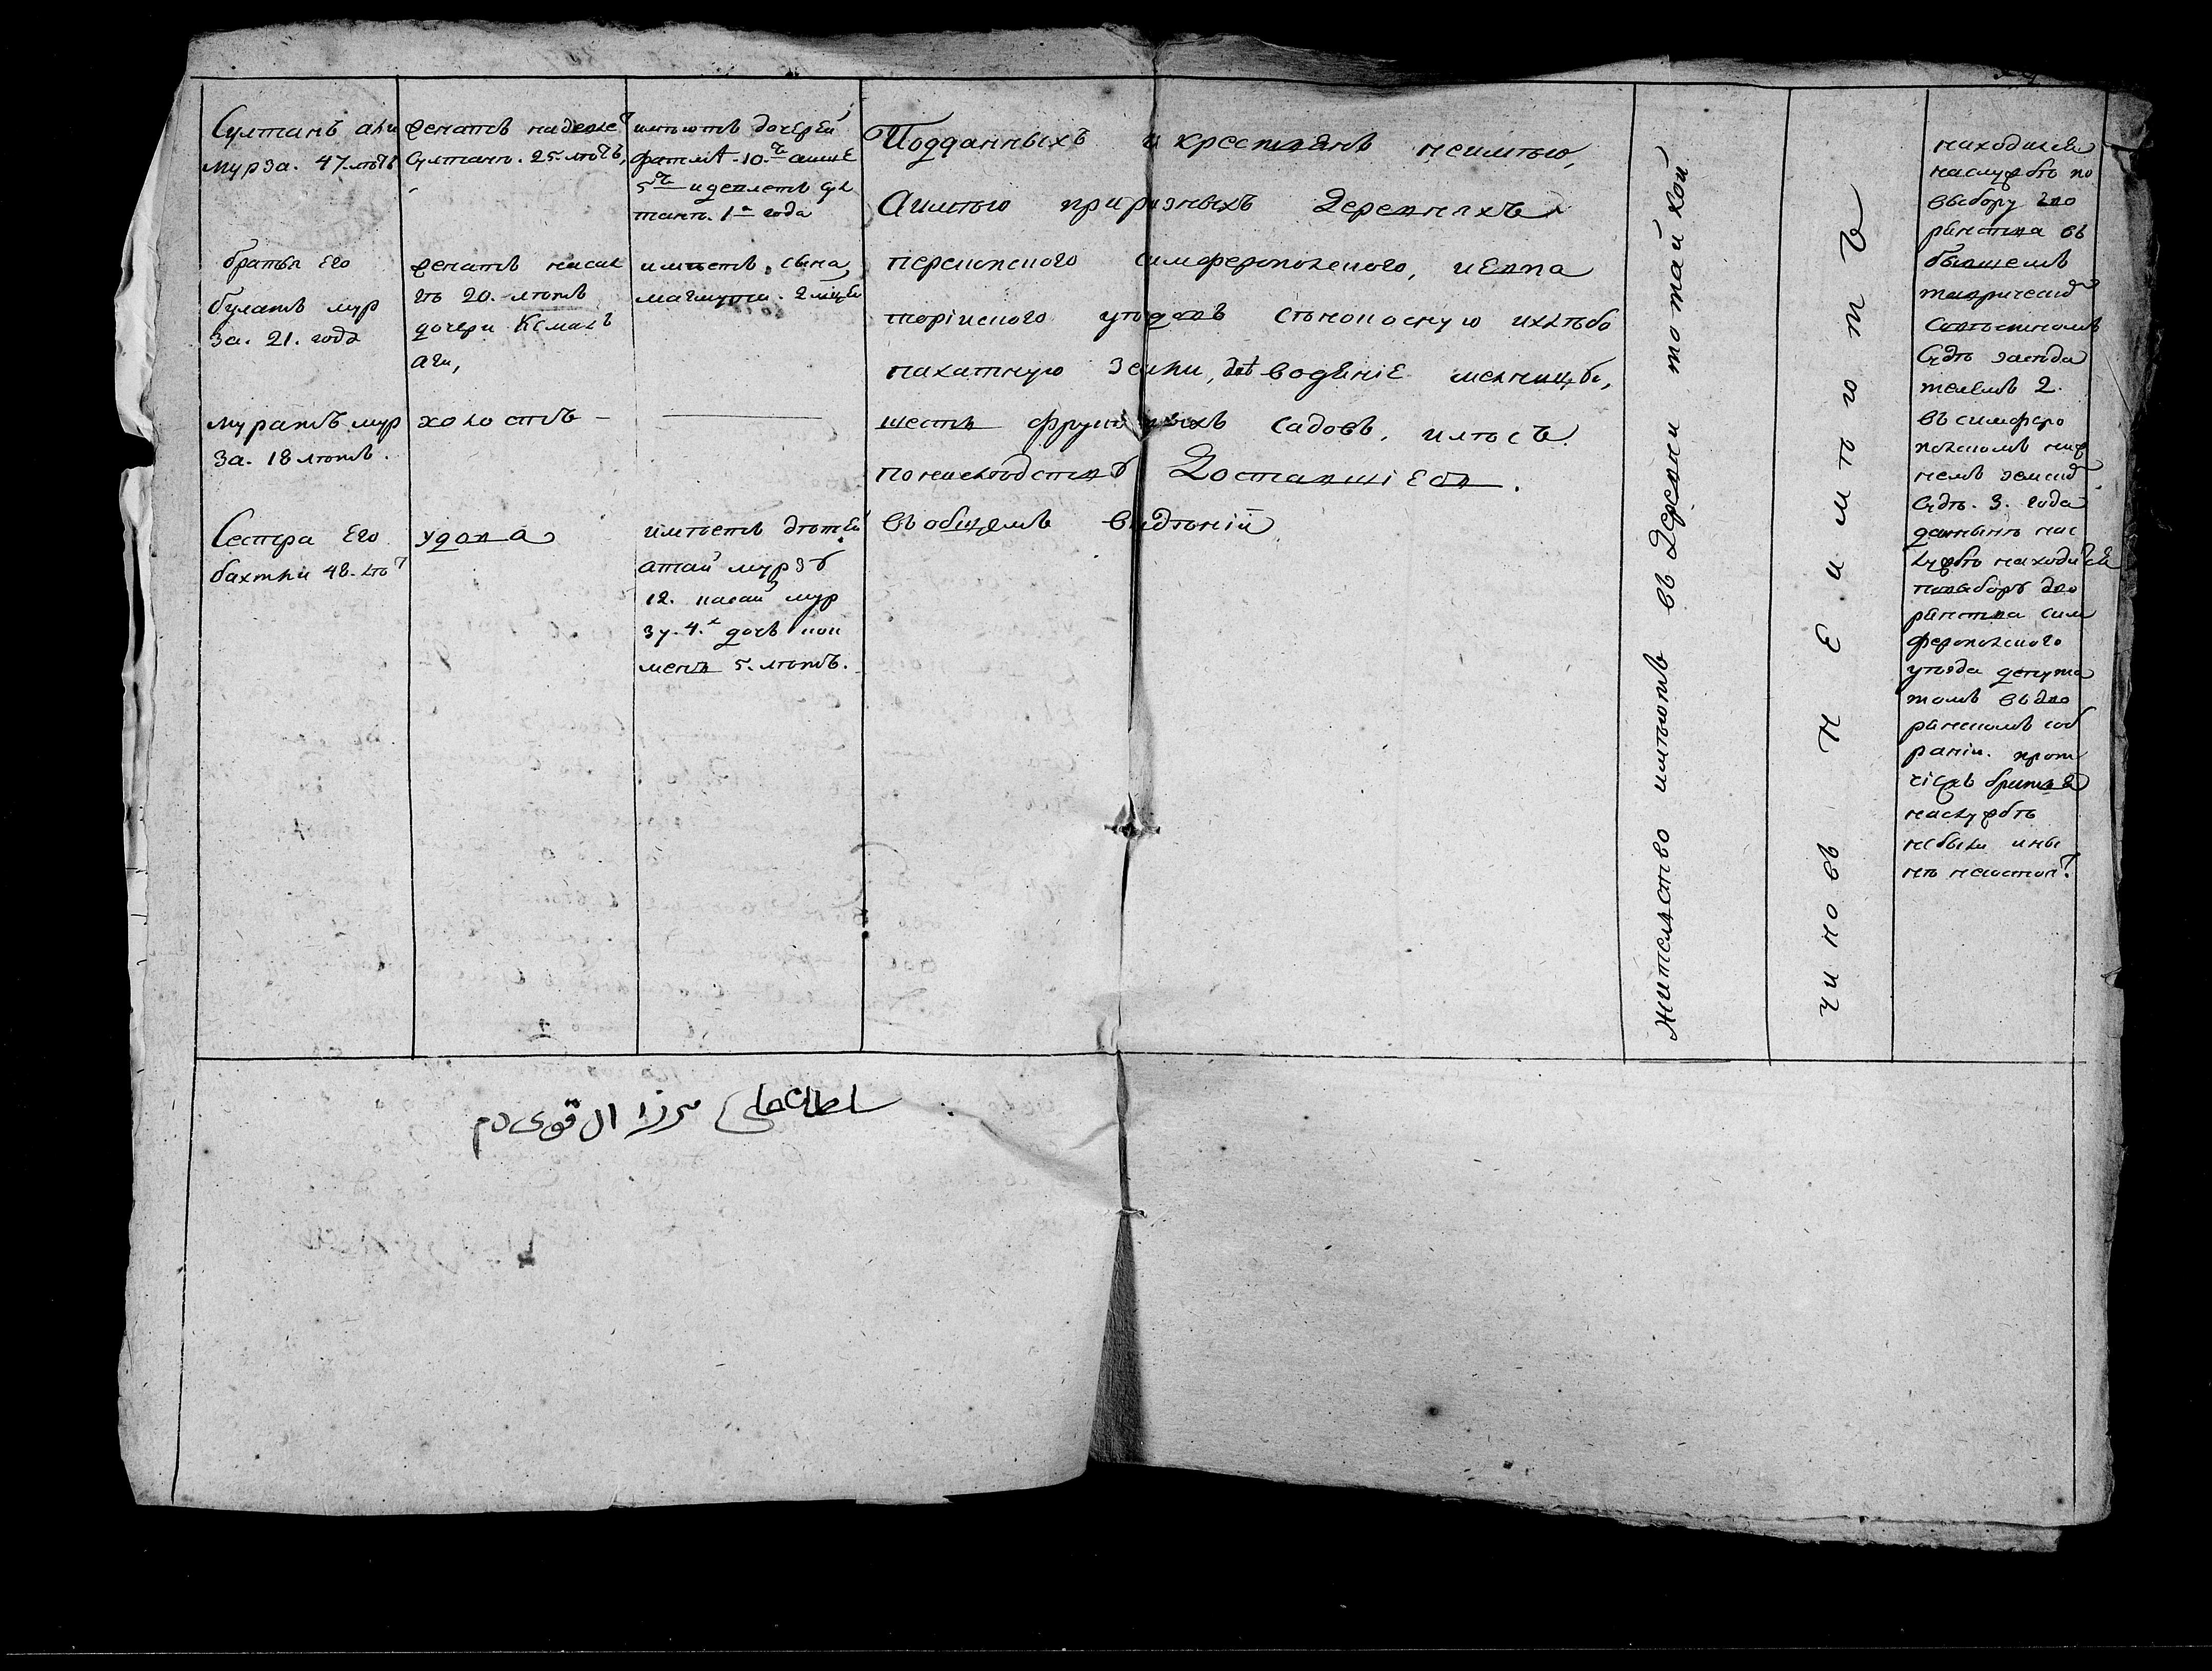 Султанъ али
мурза. 47. летъ
братья его
булатъ мур
за. 21. года
муратъ мур
за. 18 летъ.
Сестра его
бахтли 48. ле
женатъ на
Султанъ. 25. летъ,
женатъ на
20. летъ
дочери
аги,
холостъ –
удова
имеютъ дочерей
фатмѣ. 10.ъ аише
5ъ и девлетъ сул
танъ. 1а года
имеетъ сына
2
имеетъ детей
атай мурзу
12. мур
зу. 4.х дочь
5. летъ.
Подданныхъ и крестьянъ неимею,
Аимею приразныхъ Деревняхъ
перекопского симферопольского, и Евпа
торійского уездовъ сенокосную ихлебо
пахатную земли, две водяніе мелницы,
шесть фруктовыхъ садовъ, и лесъ
понаследству Доставшіеся.
въобщемъ виденій
Жителство имеютъ въ Деревни тотайкой
чиновъ неимеютъ
находился
наслужбе по
выбору дво
рянства въ
бывшемъ
таврическ
Совестномъ
Суде заседа
телемъ 2.
въ симферо
полскомъ ниж
немъ земск
Суде. 3. года
даныне нас
лужбе находится
повыборъ дво
рянства сим
феропольского
уезда депута
томъ въдво
рянскомъ соб
раніи. протчіехъ братья
наслужбе
небыли ины
не несостоя
سلطان علی مرزا